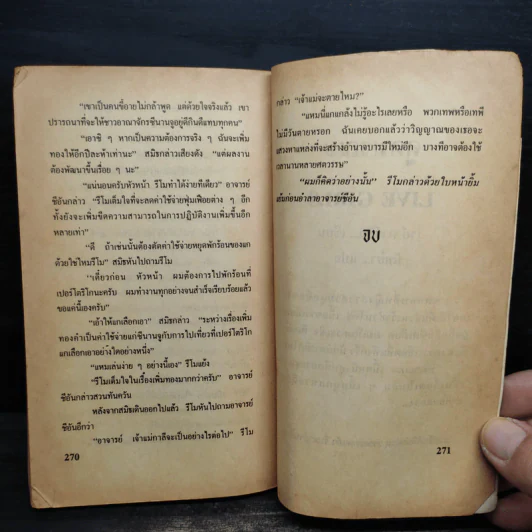 "เขาเป็นคนขี้อายไม่กล้าพูด แต่ด้วยใจจริงแล้ว เขา
ปรารถนาที่จะให้ชาวอาณาจักรซีนานจูอยู่ดีกินดีแทบทุกคน"
"เอาซิ ๆ หากเป็นความต้องการจริง ๆ ฉันจะเพิ่ม
ทองให้อีกปีละห้าเท่านะ" สมิธกล่าวเสียงดัง "แต่ผลงาน
ต้องพัฒนาขึ้นเรื่อย ๆ นะ"
"แน่นอนครับหัวหน้า รีโมทำได้ง่ายทีเดียว" อาจารย์
ชีอันกล่าว "รีโมเต็มใจที่จะลดค่าใช้จ่ายฟุ่มเฟือยต่าง ๆ อีก
ทั้งยังจะเพิ่มขีดความสามารถในการปฏิบัติงานเพิ่มขึ้นอีก
หลายเท่า"
"ดี ถ้าเช่นนั้นต้องตัดค่าใช้จ่ายหยุดพักร้อนของแก
ด้วยใช่ไหมรีโม" สมิธหันไปถามรีโม
"เดี๋ยวก่อน หัวหน้า ผมต้องการไปพักร้อนที่
เปอร์โตริโกนะครับ ผมทำงานทุกอย่างจนสำเร็จเรียบร้อยแล้ว
ขอแค่นี้เองครับ"
"เอ้าให้แกเลือกเอา" สมิธกล่าว "ระหว่างเรื่องเพิ่ม
ทองคำเป็นค่าใช้จ่ายแก่ซีนานจูกับการไปเที่ยวที่เปอร์โตริโก
แกเลือกเอาอย่างใดอย่างหนึ่ง"
"แหมเล่นง่าย ๆ อย่างนี้เอง" รีโมแย้ง
"รีโมเต็มใจในเรื่องเพิ่มทองมากกว่าครับ" อาจารย์
ชีอันกล่าวสวนทันควัน
หลังจากสมิธเดินออกไปแล้ว รีโมหันไปถามอาจารย์
ชีอันอีกว่า
"อาจารย์ เจ้าแม่กาลีจะเป็นอย่างไรต่อไป" รีโม
270
กล่าว "เจ้าแม่จะตายไหม?"
"แหมนี่แกแกล้งไม่รู้อะไรเลยหรือ พวกเทพหรือเทพี
ไม่มีวันตายหรอก ฉันเคยบอกแล้วว่าวิญญาณของเธอจะ
แสวงหาแหล่งที่จะสร้างอำนาจบารมีใหม่อีก บางทีอาจต้องใช้
เวลานานหลายศตวรรษ"
"ผมก็คิดว่าอย่างนั้น" รีโมกล่าวด้วยใบหน้ายิ้ม
ก่อนอำลาอาจารย์ชีอัน
จบ
271